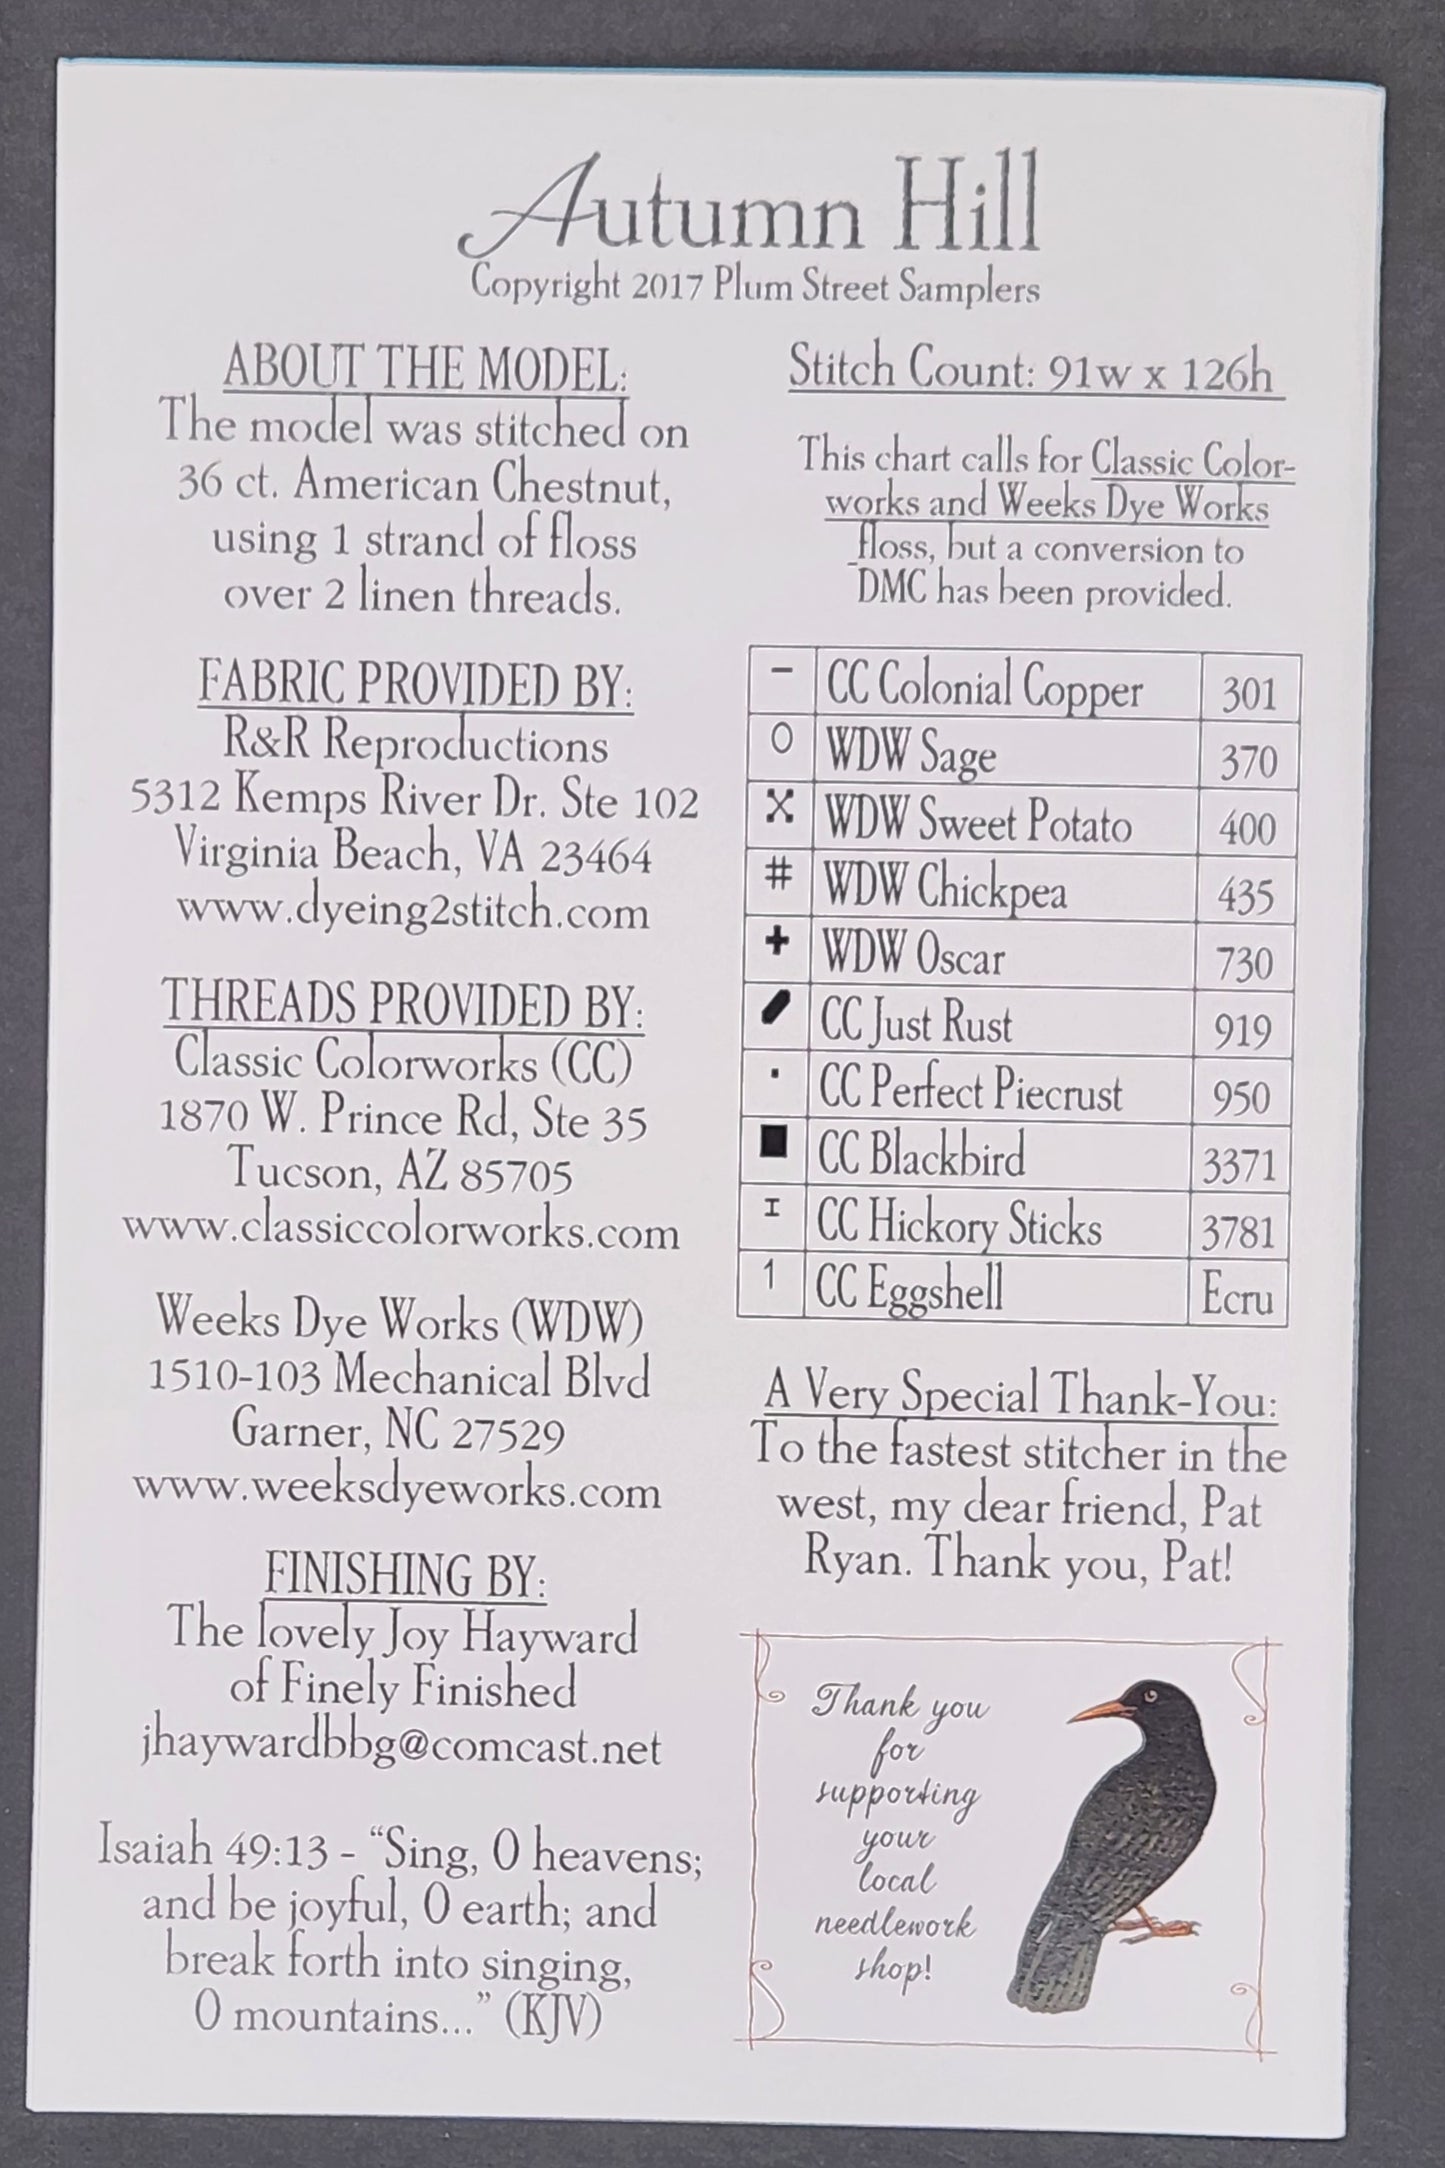 Autumn Hill
Copyright 2017 Plum Street Samplers
ABOUT THE MODEL:
The model was stitched on
36 ct. American Chestnut,
using 1 strand of floss
over 2 linen threads.
FABRIC PROVIDED BY:
R&R Reproductions
5312 Kemps River Dr. Ste 102
Virginia Beach, VA 23464
www.dyeing2stitch.com
THREADS PROVIDED BY:
Classic Colorworks (CC)
1870 W. Prince Rd, Ste 35
Tucson, AZ 85705
www.classiccolorworks.com
Weeks Dye Works (WDW)
1510-103 Mechanical Blvd
Garner, NC 27529
www.weeksdyeworks.com
FINISHING BY:
The lovely Joy Hayward
of Finely Finished
jhaywardbbg@comcast.net
Isaiah 49:13 - “Sing, O heavens;
and be joyful, O earth; and
break forth into singing,
O mountains...” (KJV)
Stitch Count: 91w x 126h
This chart calls for Classic Color-
works and Weeks Dye Works
floss, but a conversion to
DMC has been provided.
– CC Colonial Copper 301
O WDW Sage 370
X WDW Sweet Potato 400
# WDW Chickpea 435
+ WDW Oscar 730
CC Just Rust 919
· CC Perfect Piecrust 950
■ CC Blackbird 3371
I CC Hickory Sticks 3781
1 CC Eggshell Ecru
A Very Special Thank-You:
To the fastest stitcher in the
west, my dear friend, Pat
Ryan. Thank you, Pat!
Thank you
for
supporting
your
local
needlework
shop!